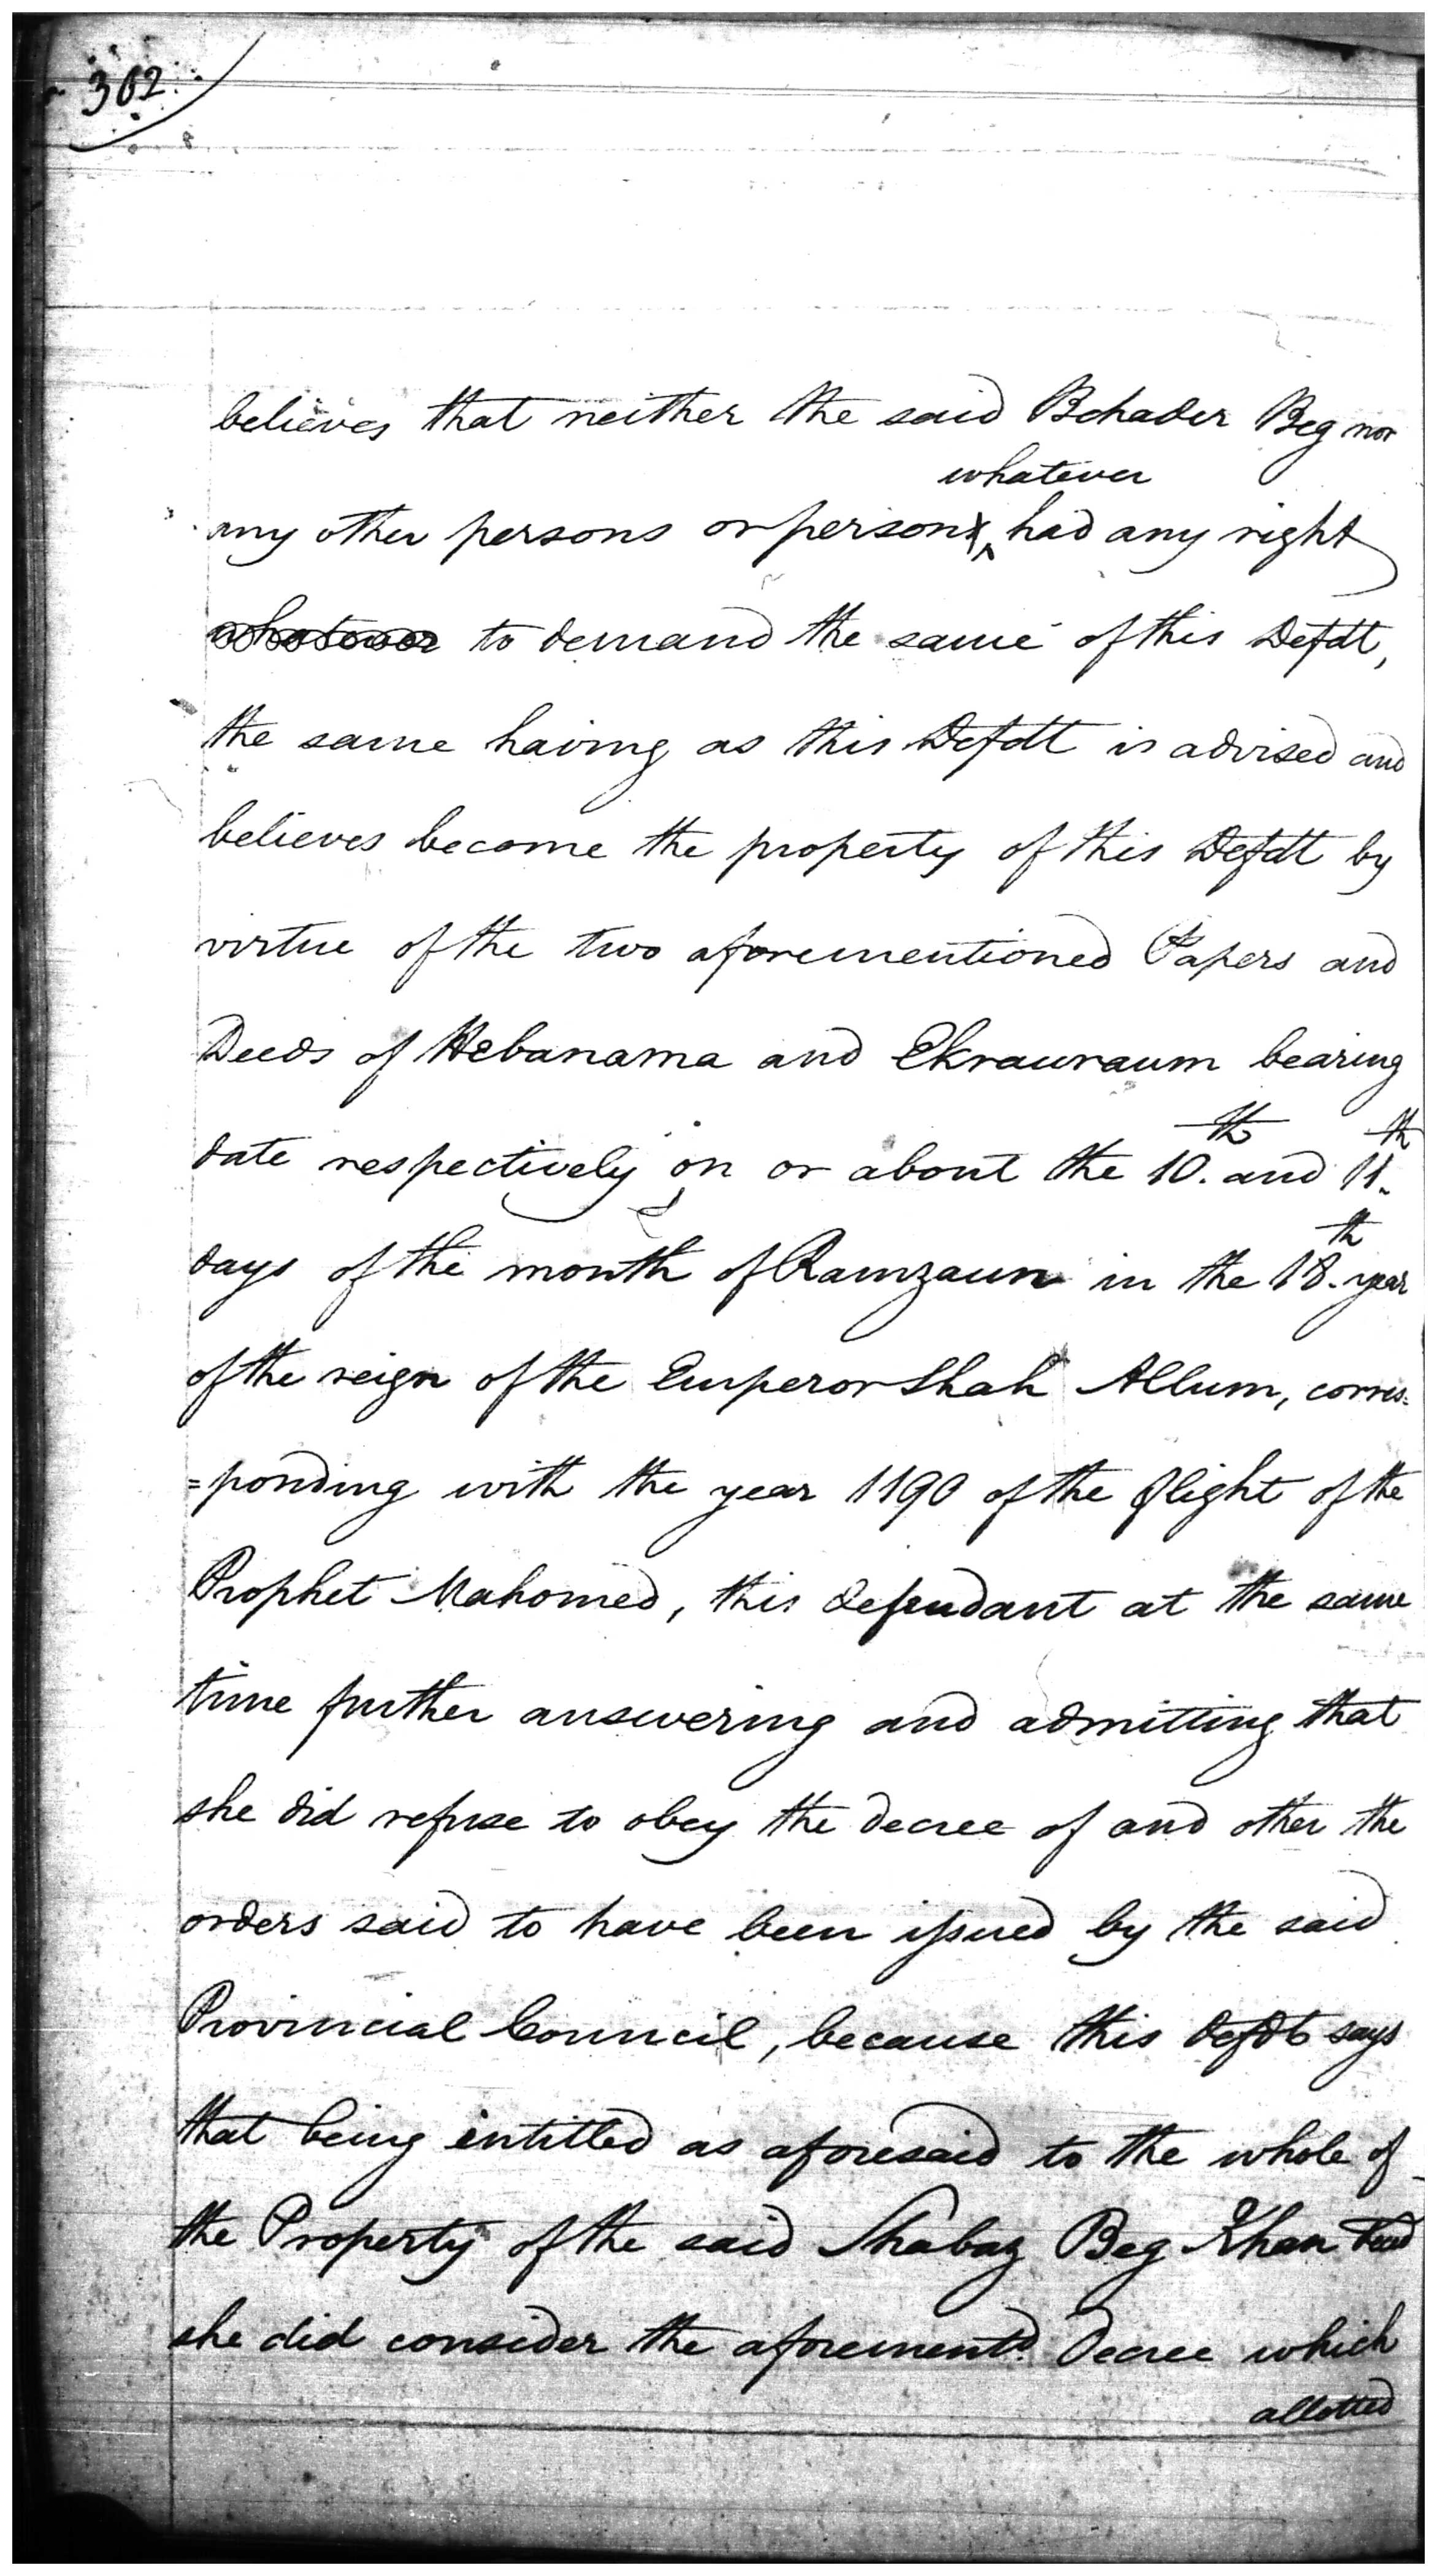 302
believes that neither the said Behader Beg nor
whatever
any other persons or person, had any right
whatever to demand the same of this Defdt,
the same having as this Defdt is advised and
believes become the property of this Defdt by
virtue of the two aforementioned Papers and
Deeds of Hebanama and Ekrauraum bearing
date respectively on or about the 10.th and 11.th
days of the month of Ramzaun in the 18.th year
of the reign of the Emperor Shah Allum, corres=
=ponding with the year 1190 of the flight of the
Prophet Mahomed, this defendant at the same
time further answering and admitting that
she did refuse to obey the decree of and other the
orders said to have been issued by the said
Provincial Council, because this defdt says
that being entitled as aforesaid to the whole of
the Property of the said Shabaz Beg Khan
she did consider the aforementd. Decree which
allotted